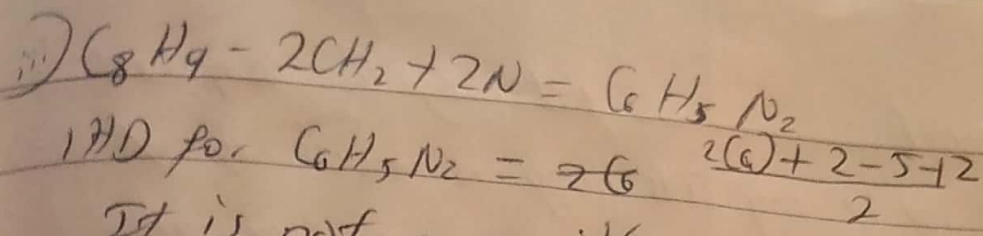 iii) C8H9 - 2CH2 + 2N = C6H5N2
IHD for C6H5N2 = 2(6) + 2 - 5 + 2 / 2
It is not